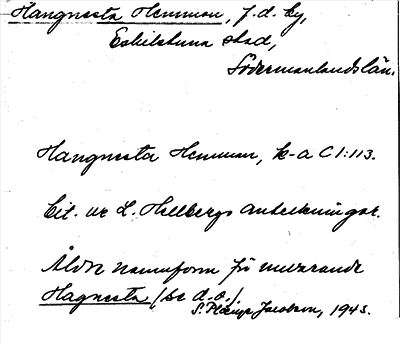 Hangnesta Hemman, f.d. by,
Eskilstuna stad,
Södermanlands län.
Hangnesta Hemman, k-a C1:113.
Cit. ur L. Hellbergs anteckningar.
Äldre namnform för nuvarande
Hagnesta (se d.o.)
S. Jacobson, 1943.